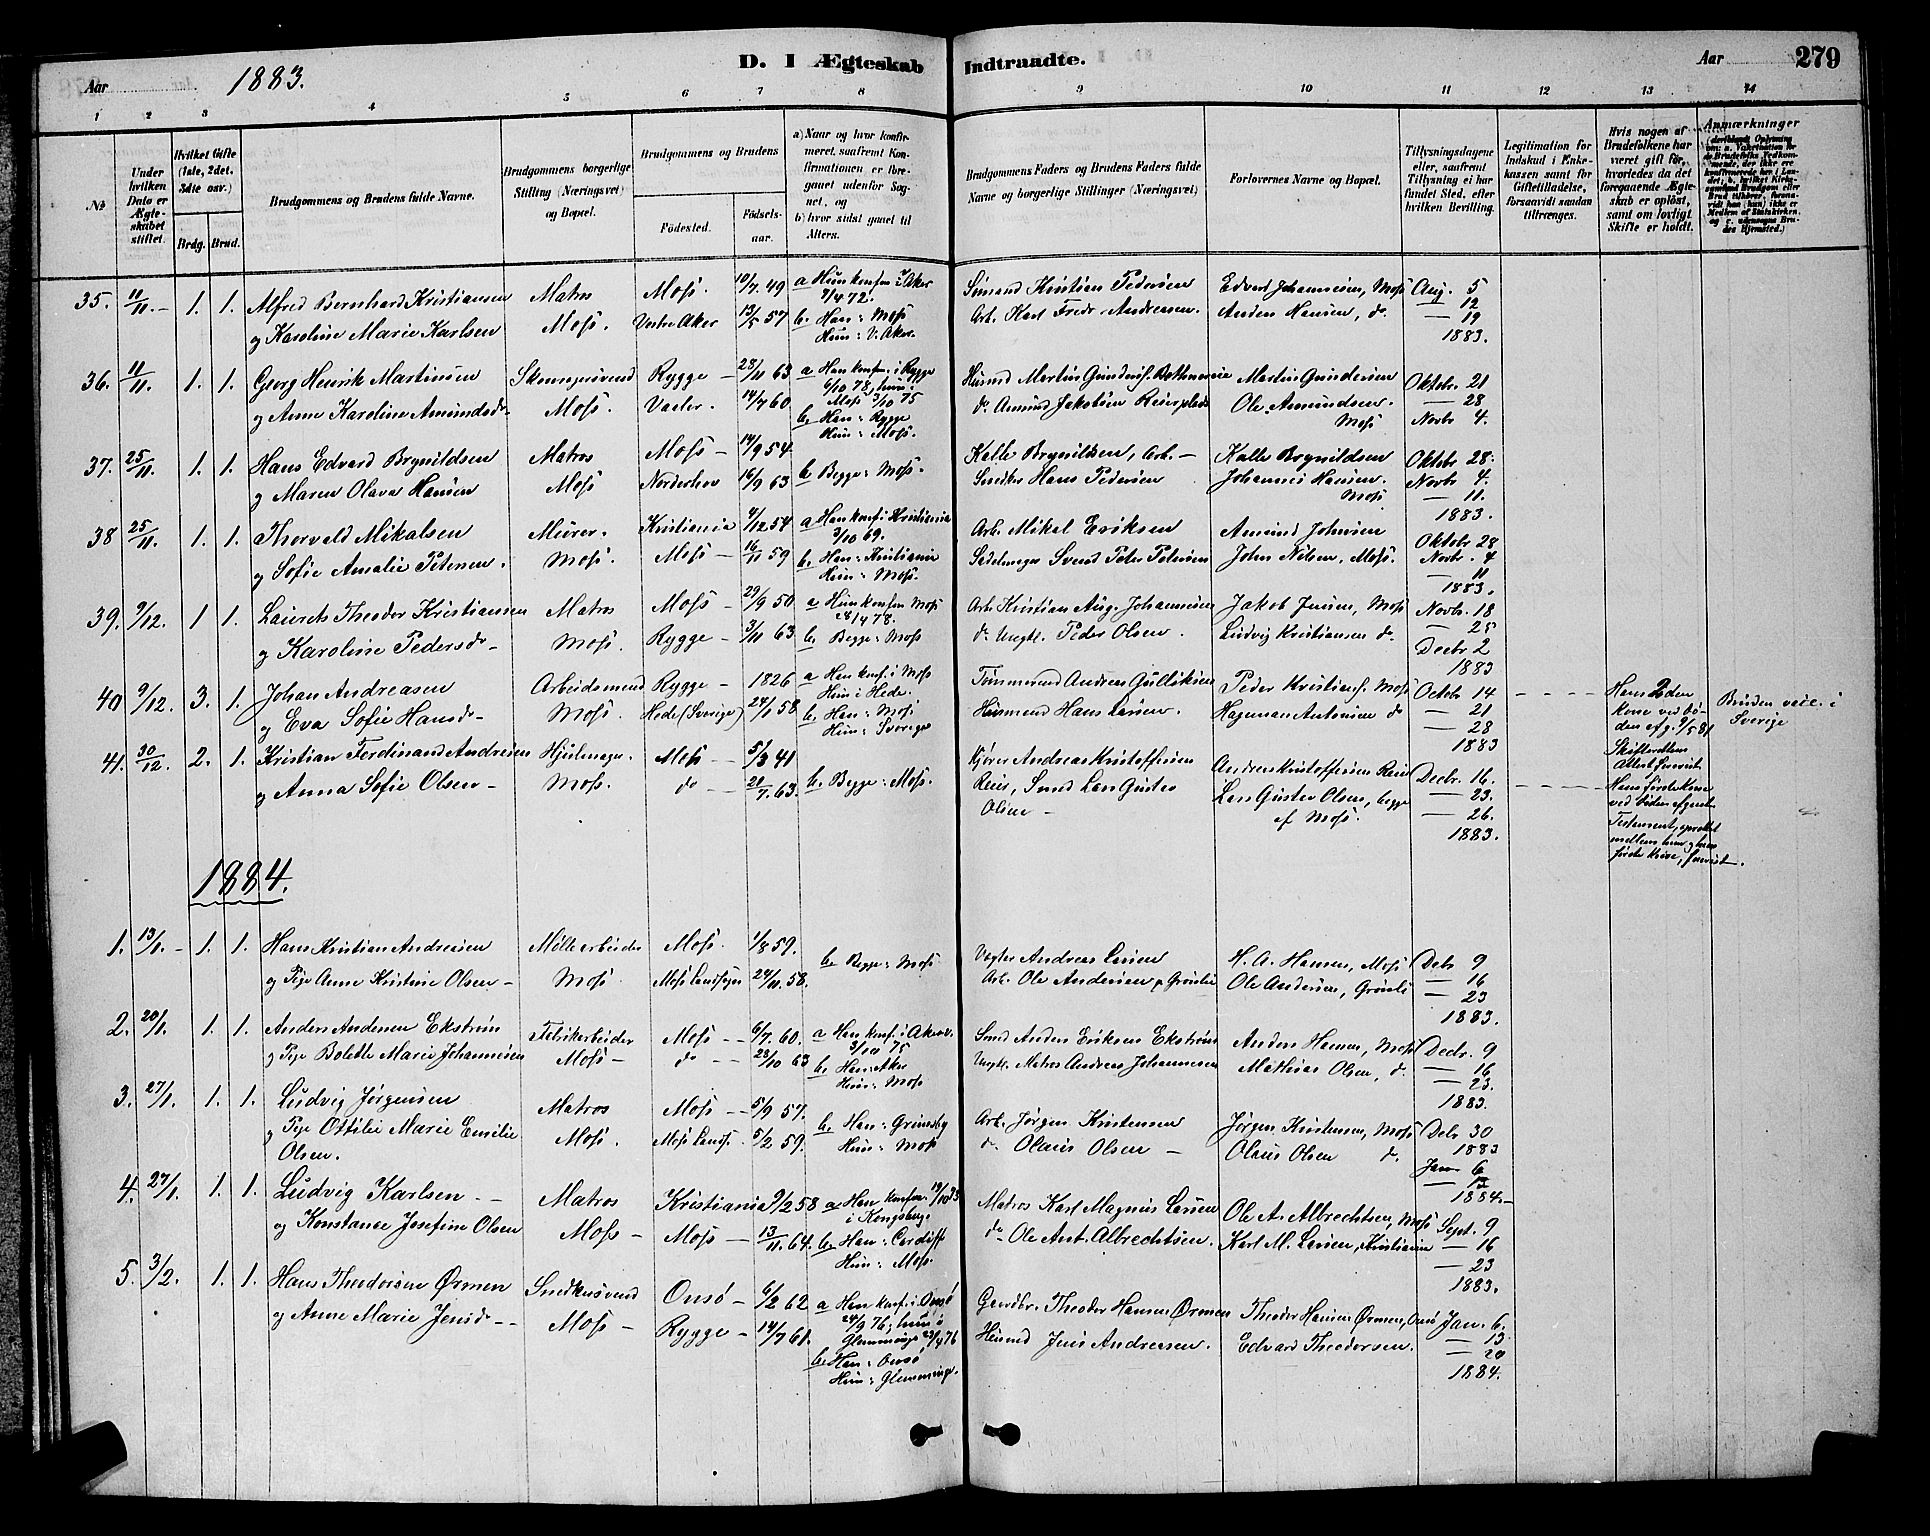 D. I Ægteskab Indtraadte.
Aar 1883.
Aar 279
1 2 3 4 5 6 7 8 9 10 11 12 13 14
No.
Under hvilken Dato er Ægteskabet stiftet.
Hvilket Gifte (1ste, 2det, 3die osv.)
Brdg. Brud.
Brudgommens og Brudens fulde Navne.
Brudgommens borgerlige Stilling (Næringsvei) og Bopæl.
Brudgommens og Brudens
Fødested.
Fødsels-aar.
a) Naar og hvor konfirmeret, saafremt Konfirmationen er foregaaet udenfor Sognet, og b) hvor sidst gaaet til Alters.
Brudgommens Faders og Brudens Faders fulde Navne og borgerlige Stillinger (Næringsvei)
Forlovernes Navne og Bopæl.
Tillysningsdagene eller, saafremt Tillysning ei har fundet Sted, efter hvilken Bevilling.
Legitimation for Indskud i Enkekassen samt for Giftetilladelse, forsaavidt saadan tiltrænges.
Hvis nogen af Brudefolkene har været gift før, hvorledes da det foregaaende Ægteskab er opløst, samt om lovligt Skifte er holdt.
Anmærkninger
35. 11/11 - 1. 1. Alfred Bernhard Kristiansen Matros Moss. 10/7 49 a Hun konf. i V. Aker Sømand Kristian Pedersen Edvard Johannesen, Moss Aug. 5
og Karoline Marie Karlsen Moss. Vestre Aker 13/5 57 7/4 72. Arb. Karl Fredr. Andreasen. Anders Hansen, do. — 12
b. Han: Moss — 19
Hun: V. Aker. 1883.
36. 11/11. 1. 1. Georg Henrik Martinsen Moss. Rygge — 28/11 63 a Han konf. i Rygge Martin Gundersen Oktobr. 21
og Anne Karoline Amundsdr. Moss. Vaaler. 14/7 60 6/10 78, hun i do. Amund Jakobsen Ole Amundsen. — 28
Moss 3/10 75 Moss Novbr. 4.
b. Han: Rygge
Hun: Moss.
37. 25/11. 1. 1. Hans Edvard Brynildsen Matros Moss — 14/9 54. Kalle Brynildsen, Arb. — Kalle Brynildsen Oktobr. 28.
og Maren Olava Hansen Moss Norderhov 16/9 63 b. Begge: Moss. Snedker Hans Pedersen Johannes Hansen. Novbr. 4.
Moss — 11.
1883.
38 25/11. 1. 1. Thorvald Mikalsen Murer. Kristiania 4/12 54 a Han konf. i Kristiania Arb. Mikal Eriksen Amund Johnsen Oktobr. 28
og Sofie Amalie Petersen. Moss. Moss — 16/11 59 3/10 69. Sadelmager Svend Peter Petersen John Nilsen, Moss. Novbr. 4
b. Han: Kristiania — 11
Hun: Moss. 1883.
39. 9/12. 1 1. Laurits Theodor Kristiansen Matros Moss — 29/9 50 a Hun konf. i Moss Arb. Kristian Aug. Johannesen Jakob Jensen, Moss Novbr. 18
og Karoline Pedersdr. Moss. Rygge — 3/11 63. 28/4 78. do. Ungk. Peder Olsen. Ludvig Kristiansen do. — 25
b. Begge: Moss Decbr 2
1883
40 9/12. 3. 1. Johan Andreasen Arbeidsmand Rygge — 1826 a Han konf. i Moss Tømmermd Andreas Gulliksen Peder Kristians. Moss Octobr 14 Hans 2den kone ved døden afg. 9/5 81 Bruden vacc. i Sverige
og Eva Sofie Hansdr. Moss. Hede (Sverige) 24/1 58 Hun i Hede. Husmand Hans Larsen. Hagemann Antonsen do — 21
b. Han: Moss — 28
Hun: Sverige 1883 Skifteretten Attest forevist.
41. 30/12. 2. 1. Kristian Ferdinand Andresen Hjulmager. Moss — 5/3 41 Kjører Andreas Kristoffersen Andreas Kristoffersen Reier Decbr. 16. Hans første kone ved døden afgaaet.
og Anna Sofie Olsen — Moss. do — 20/7. 63. b. Begge: Moss. Reier, Smed Lars Gustav Lars Gustav Olsen, begge — 23.
Olsen — af Moss. — 26. Testament, oprettet mellem ham og hans første kone, forevist.
1883.
1884.
1. 13/1. - 1. 1. Hans Kristian Andresen Møllearbeider Moss. 1/8 59. b. Begge: Moss Vægter Andreas Larsen H. A. Hansen, Moss Debr. 9
og Pige Anne Kristine Olsen — Moss Moss Landsogn 24/11. 58. Arb. Ole Andersen p. Grønlie Ole Andersen, Grønli — 16
— 23
1883.
2. 20/1. 1. 1. Anders Andersen Ekstrøm Fabrikarbeider Moss — 6/7. 60. a Han konf. i Aker v. Smd Anders Eriksen Ekstrøm Anders Hansen, Moss Decbr. 9
og Pige Bolette Marie Johannesen Moss — do — 28/10 63 3/10 75 Ungk. Matros Andreas Johannesen Mathias Olsen, do. — 16
b. Han: Aker — 23.
Hun: Moss 1883.
3. 27/1. 1. 1. Ludvig Jørgensen Matros Moss — 5/9 57. b. Han: Grimsby Arb. Jørgen Kristensen Jørgen Kristensen, Moss Debr. 30
og Pige Ottilie Marie Emilie Moss. Moss Lands. 5/2 59. Hun: Moss do. Olaus Olsen — Olaus Olsen do. 1883
Olsen. Janr 6
— 13
1884.
4. 27/1. 1. 1. Ludvig Karlsen — Matros Kristiania 9/2 58 a Han konfirm. Matros Karl Magnus Larsen Ole A. Albrechtsen, Moss Sept. 9
og Konstanse Josefine Olsen Moss — Moss — 13/11. 64. i Kongsberg. do. Ole Ant. Albrechtsen. Karl M. Larsen, Kristiania — 16
b. Han: Cardiff — 23
Hun: Moss. 1883.
5. 3/2. 1. 1. Hans Theodorsen Ørmen Snedkersvend Onsø — 6/2 62 a Han konf. i Onsø Gaardbr. Theodor Hansen Ørmen Theodor Hansen Ørmen, Onsø Jan. 6.
og Anne Marie Jensdr. — Moss — Rygge — 14/7 61. 24/9 76, hun i Husmd Jens Andreasen. Edvard Theodorsen. — 13
Glemminge 23/4 76 — 20
b. Han: Onsø 1884.
Hun: Glemminge.